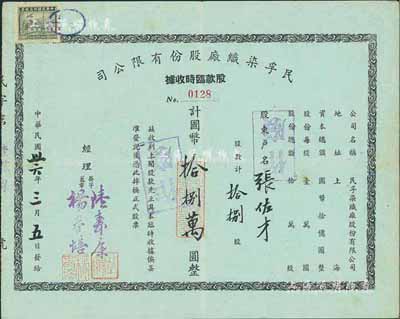 民孚染織廠股份有限公司
股款臨時收據
No. 0128
公司名稱 民孚染織廠股份有限公司
地址 上海
資本總額 國幣拾億圓整
股份每股 壹萬圓
股份總額 拾萬股
股東戶名 張佐才
股數計 拾捌 股
計國幣 拾捌萬 圓整
茲收到上開股款先立具臨時收據俟呈
准登記後憑此掉換正式股票
經理
中華民國卅六年三月五日發給